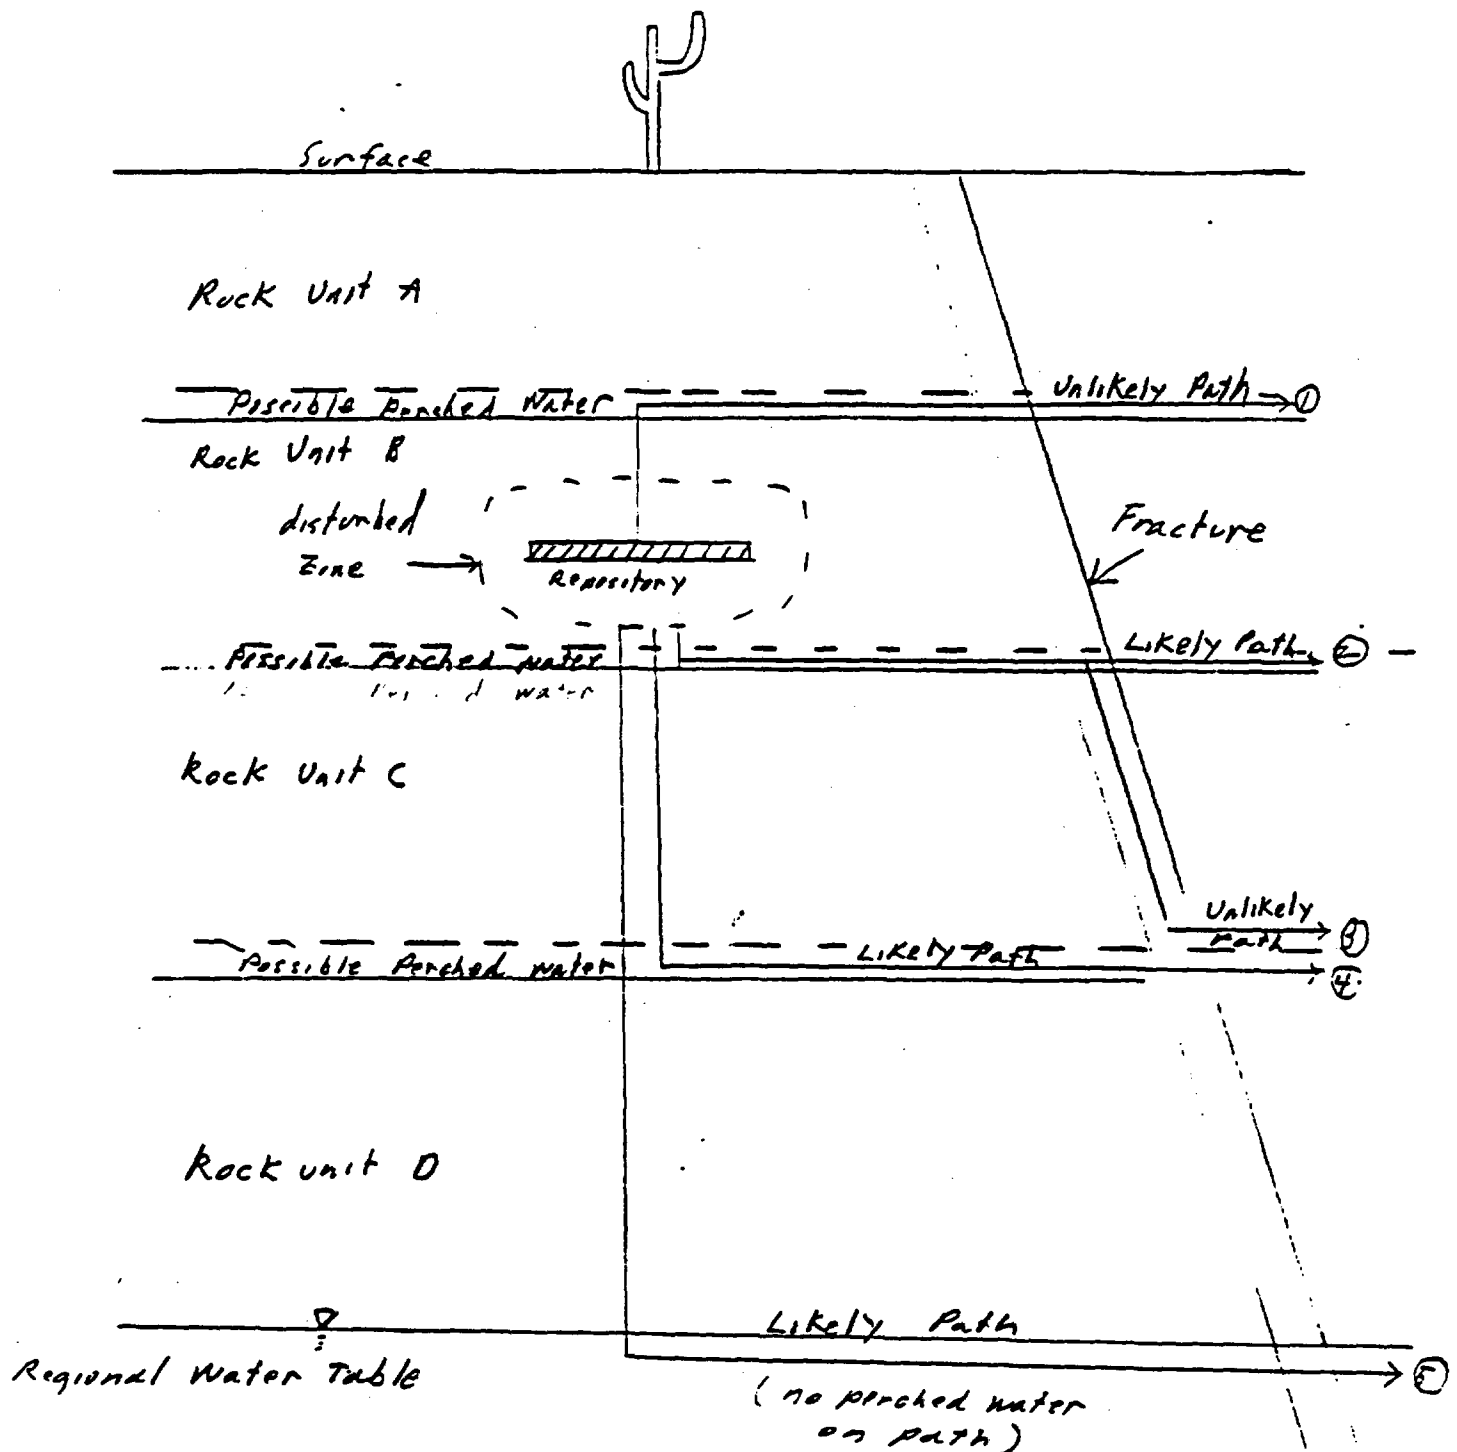 Surface
Rock Unit A
Possible Perched Water
Unlikely Path
①
Rock Unit B
disturbed
Zone
Repository
Fracture
Possible Perched water
Likely Path
②
water
Rock Unit C
Unlikely
Path
③
Possible Perched water
Likely Path
④
Rock unit D
Likely Path
Regional Water Table
⑤
(no perched water
on path)